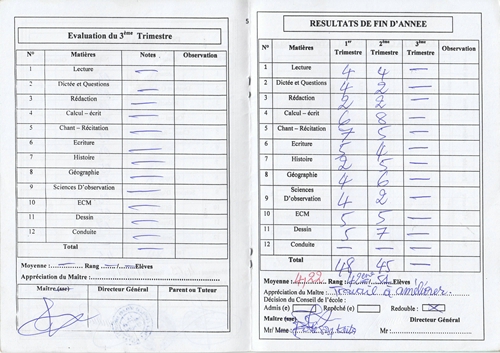 Evaluation du 3ème Trimestre
N° Matières Notes Observation
1 Lecture —
2 Dictée et Questions —
3 Rédaction —
4 Calcul – écrit —
5 Chant – Récitation —
6 Ecriture —
7 Histoire —
8 Géographie —
9 Sciences D'observation —
10 ECM —
11 Dessin —
12 Conduite —
Total —
Moyenne : Rang Elèves
Appréciation du Maître :
Maître(sse) Directeur Général Parent ou Tuteur
5
RESULTATS DE FIN D'ANNEE
N° Matières 1er Trimestre 2ème Trimestre 3ème Trimestre Observation
1 Lecture 4 4 —
2 Dictée et Questions 4 2 —
3 Rédaction 2 2 —
4 Calcul – écrit 6 8 —
5 Chant – Récitation 7 5 —
6 Ecriture 5 4 —
7 Histoire 2 5 —
8 Géographie 4 6 —
9 Sciences D'observation 4 2 —
10 ECM 5 5 —
11 Dessin 5 7 —
12 Conduite — — —
Total 48 45 —
Moyenne : 4,22 Rang 42ème Elèves
Appréciation du Maître : Travail à améliorer.
Décision du Conseil de l'école :
Admis (e) Repêché (e) Redouble : X
Maître (sse) Directeur Général
Mr/ Mme : Mr :